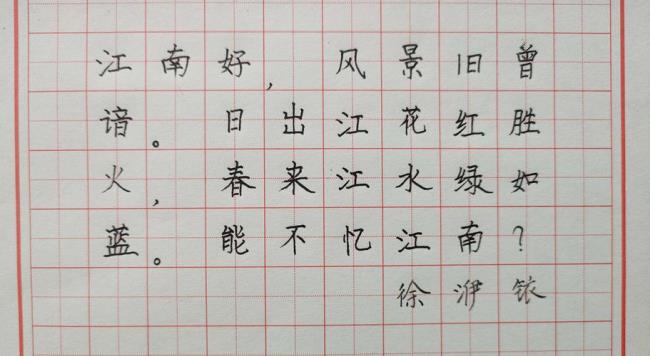 江南好，风景旧曾
谙。日出江花红胜
火，春来江水绿如
蓝。能不忆江南？
徐洢铱